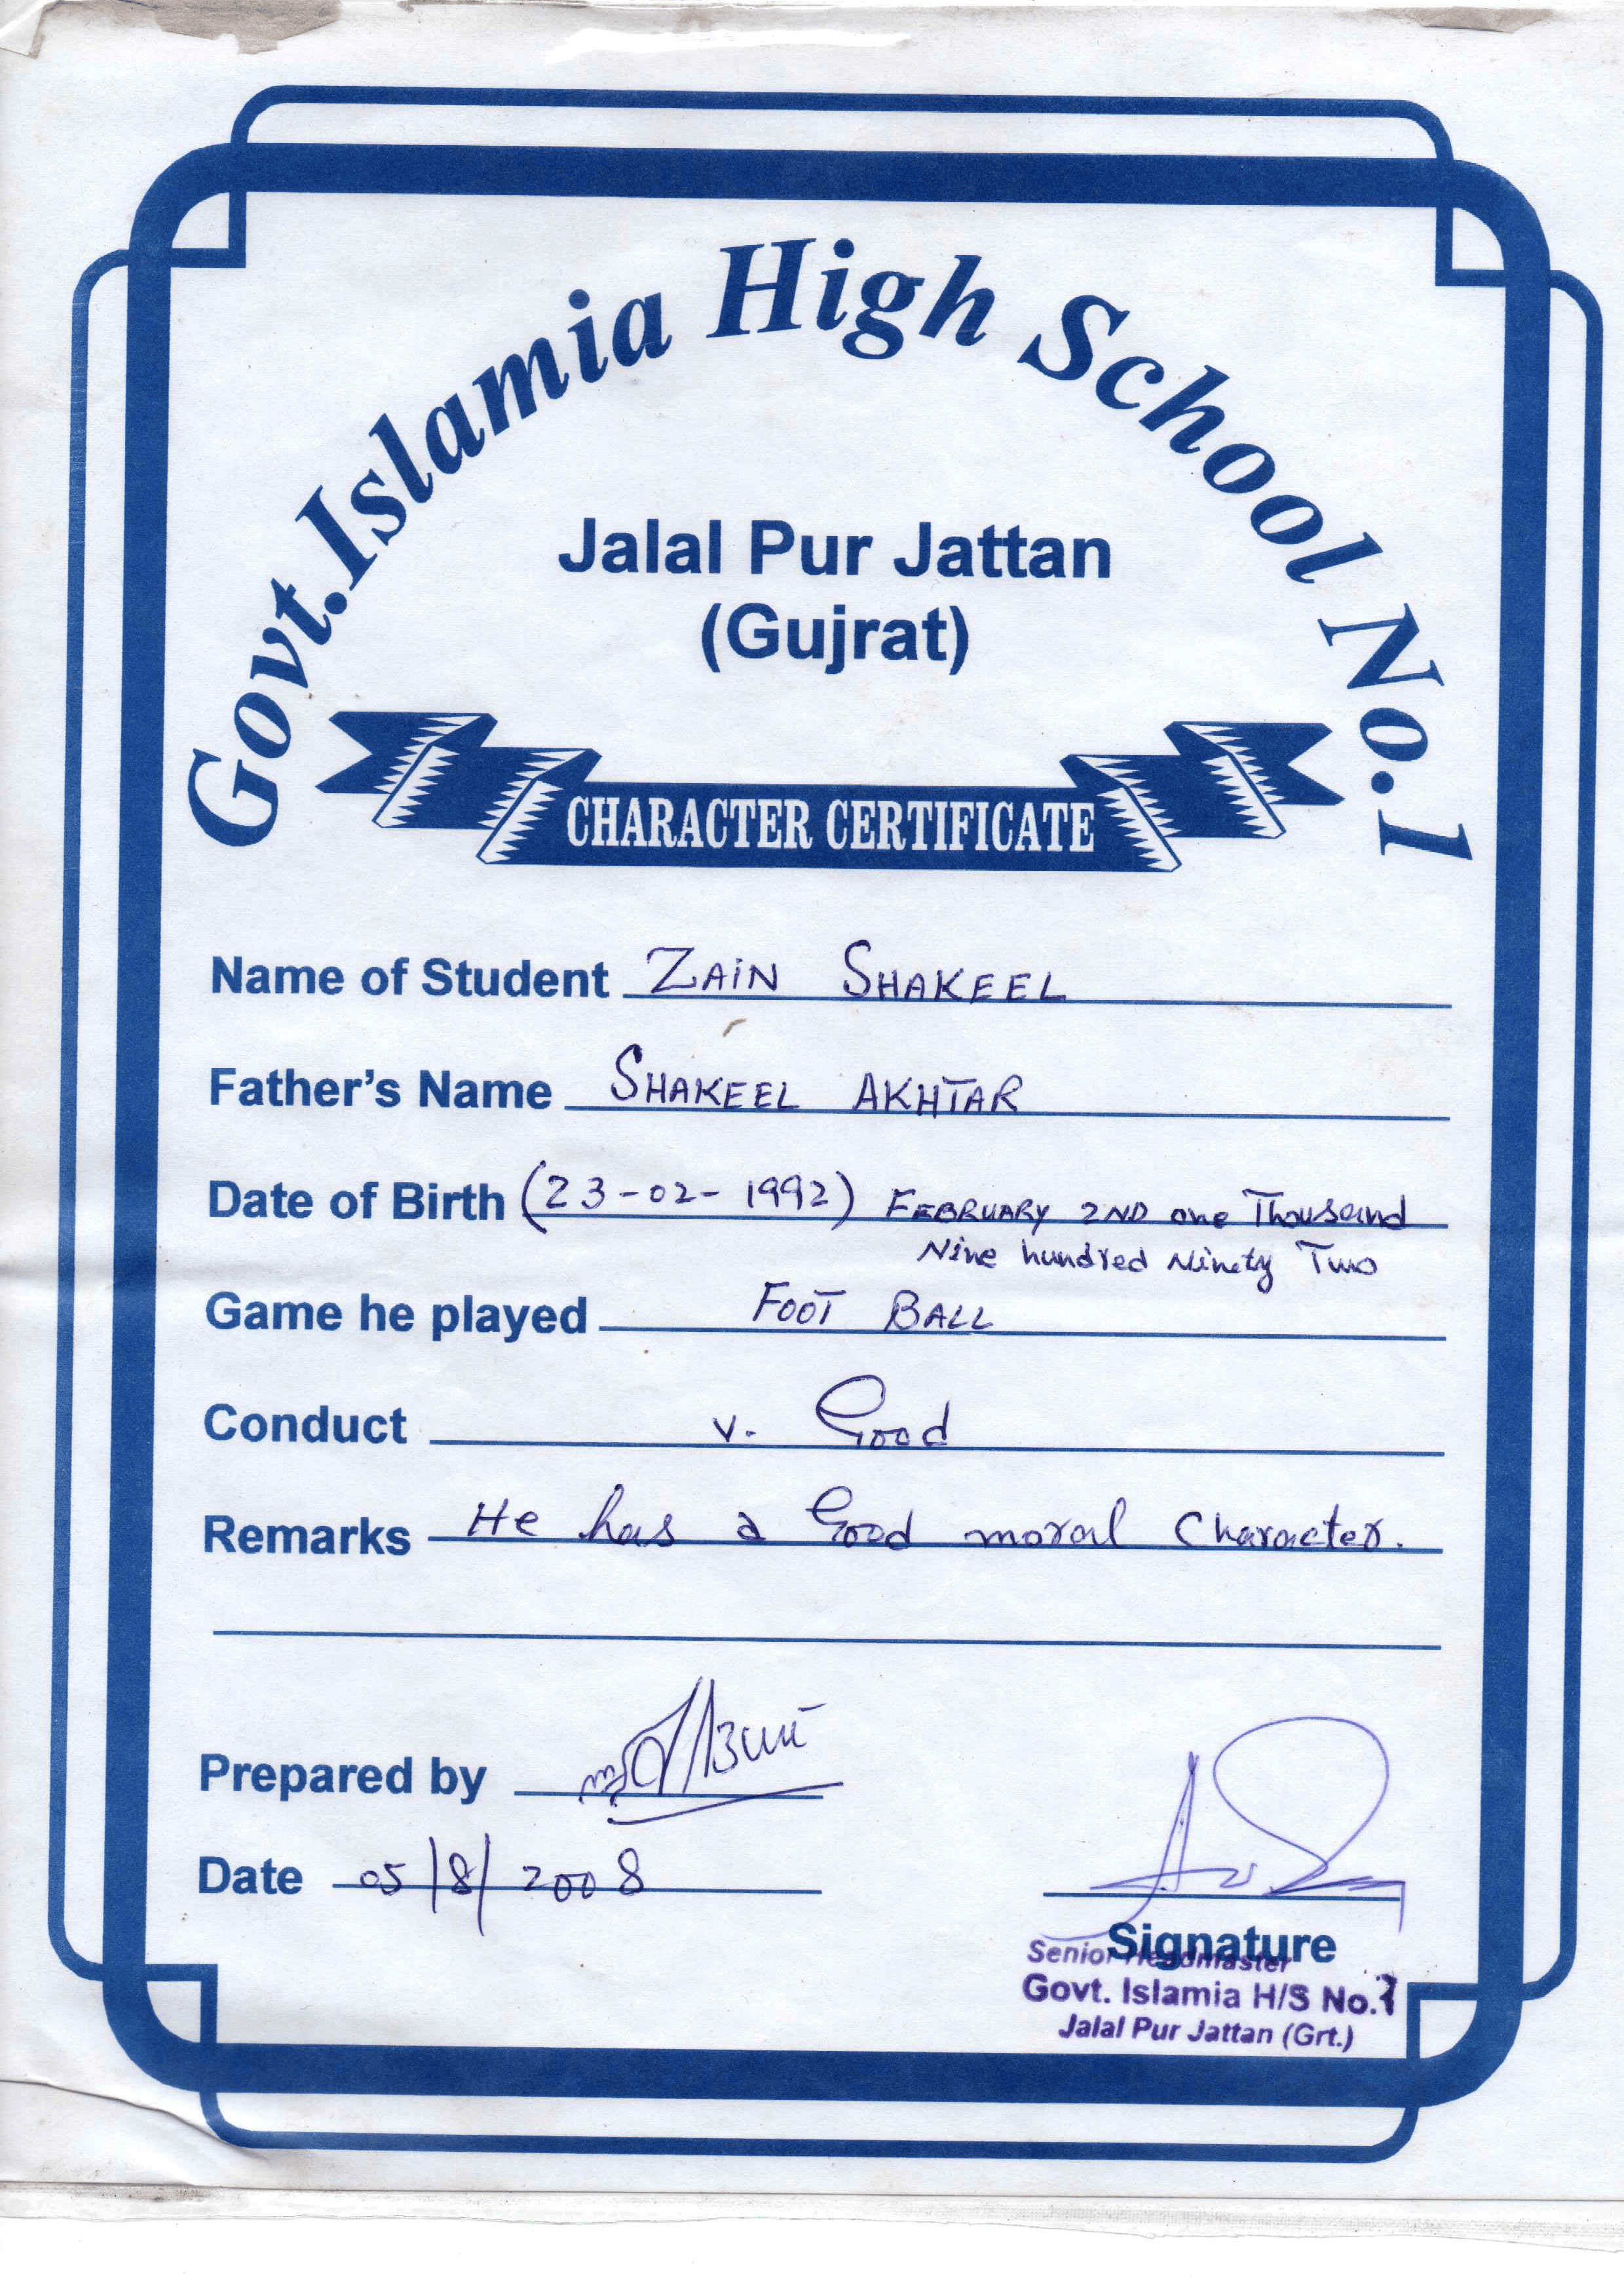 Govt. Islamia High School No.1
Jalal Pur Jattan
(Gujrat)
CHARACTER CERTIFICATE
Name of Student ZAIN SHAKEEL
Father's Name SHAKEEL AKHTAR
Date of Birth (23-02-1992) FEBRUARY 2ND one Thousand
Nine hundred Ninety Two
Game he played FOOT BALL
Conduct v. Good
Remarks He has a Good moral Character.
Prepared by
Date 05/8/2008
Signature
Senior Headmaster
Govt. Islamia H/S No.1
Jalal Pur Jattan (Grt.)